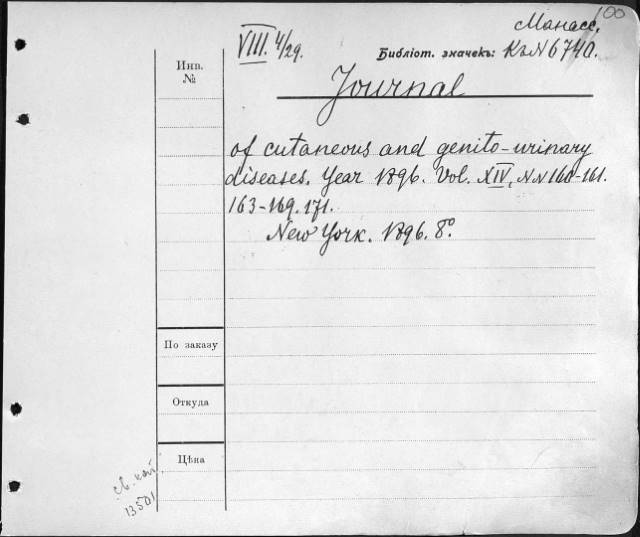 100
Манасс.
VIII. 4/29.
Библіот. значекъ: КзN 6740.
Инв.
№
Journal
of cutaneous and genito-urinary
diseases. Year 1896. Vol. XIV, NN 160-161.
163-169. 171.
New York. 1896. 8º.
По заказу
Откуда
Цѣна
св. кат
13501